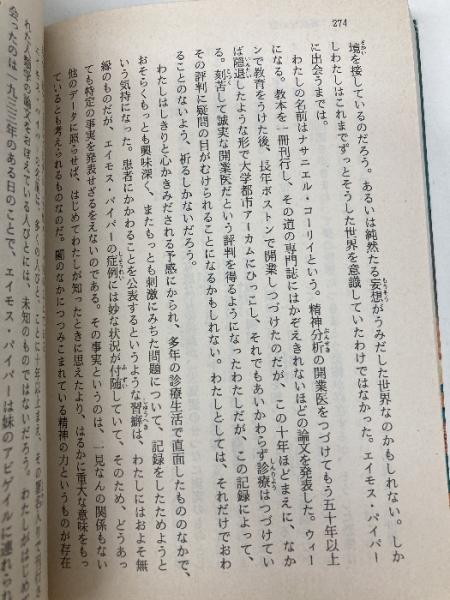 274
境を接しているのだろう。あるいは純然たる妄想がうみだした世界なのかもしれない。しか
しわたしはこれまでずっとそうした世界を意識していたわけではなかった。エイモス・パイパー
に出会うまでは。
わたしの名前はナサニエル・コーリイという。精神分析の開業医をつづけてもう五十年以上
になる。教本を一冊刊行し、その道の専門誌にはかぞえきれないほどの論文を発表した。ウィー
ンで教育をうけた後、長年ボストンで開業しつづけたのだが、この十年ほどまえに、なか
ば隠退したような形で大学都市アーカムにひっこし、それでもあいかわらず診療はつづけてい
る。刻苦して誠実な開業医だという評判を得るようになったわたしだが、この記録によって、
その評判に疑問の目がむけられることになるかもしれない。わたしとしては、それだけでおわ
ることのないよう、祈るしかないだろう。
わたしはしきりと心かきみだされる予感にかられ、多年の診療生活で直面したもののなかで、
おそらくもっとも興味深く、またもっとも刺激にみちた問題について、記録をしたためようと
いう気持になった。患者にかかわることを公表するというような習癖は、わたしにはおよそ無
縁のものだが、エイモス・パイパーの症例には妙な状況が付随していて、そのため、どうあっ
ても特定の事実を発表せざるをえないのである。その事実というのは、一見なんの関係もない
他のデータに照らせば、はじめてわたしが知ったときに思えたより、はるかに重大な意味をもっ
ているとも考えられるものなのだ。闇のなかにつつみこまれている精神の力というものが存在
れた人類学の論文をおぼえている人びとには、未知のものではないだろう。わたしがはじめ
会ったのは一九三三年のある日のことで、エイモス・パイパーは妹のアビゲイルに連れられ